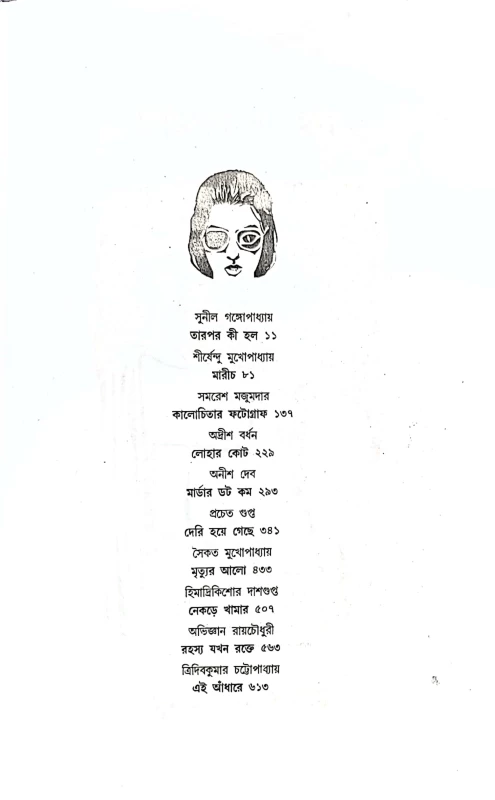 সুনীল গঙ্গোপাধ্যায়
তারপর কী হল ১১
শীর্ষেন্দু মুখোপাধ্যায়
মারীচ ৮১
সমরেশ মজুমদার
কালোচিতার ফটোগ্রাফ ১৩৭
অদ্রীশ বর্ধন
লোহার কোট ২২৯
অনীশ দেব
মার্ডার ডট কম ২৯৩
প্রচেত গুপ্ত
দেরি হয়ে গেছে ৩৪১
সৈকত মুখোপাধ্যায়
মৃত্যুর আলো ৪৩৩
হিমাদ্রিকিশোর দাশগুপ্ত
নেকড়ে খামার ৫০৭
অভিজ্ঞান রায়চৌধুরী
রহস্য যখন রক্তে ৫৬৩
ত্রিদিবকুমার চট্টোপাধ্যায়
এই আঁধারে ৬১৩